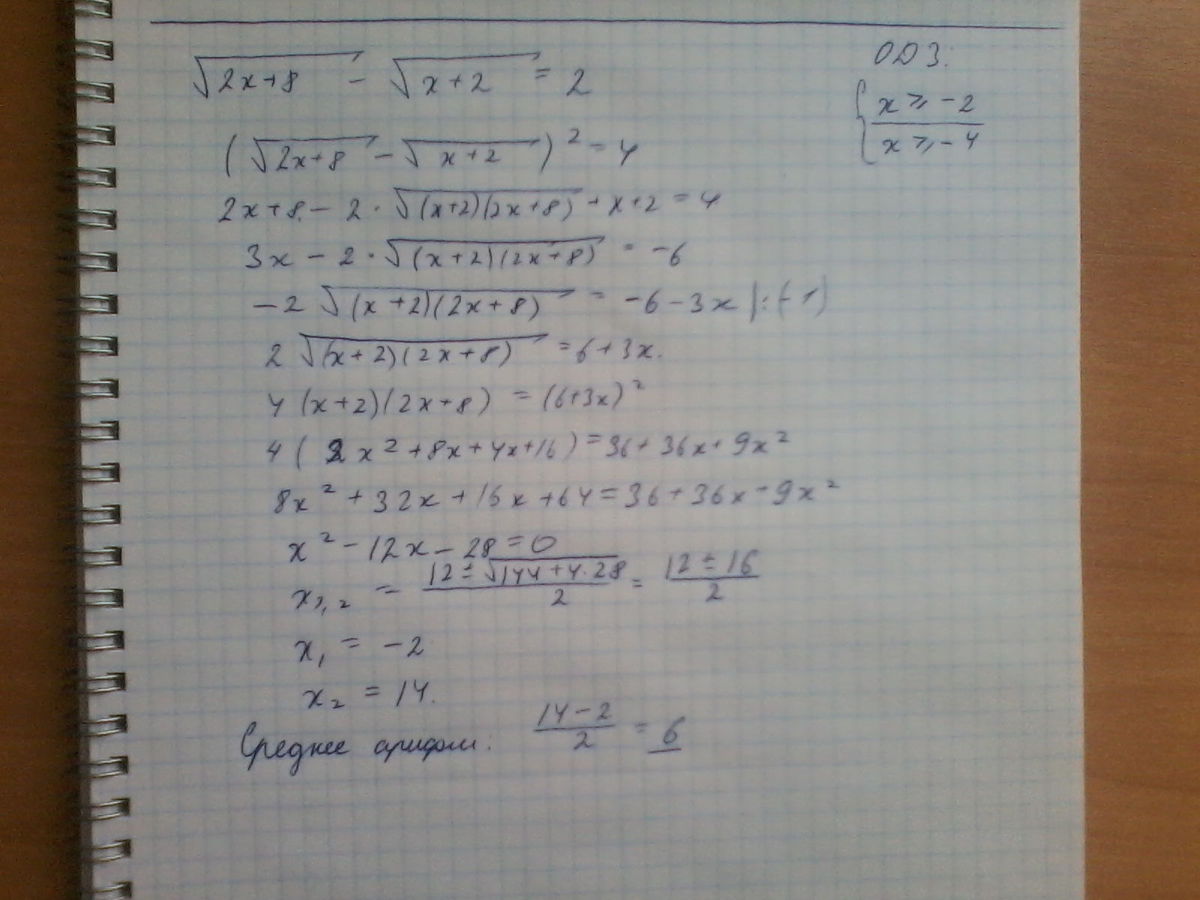 √(2x+8) - √(x+2) = 2
ОДЗ:
{ x ⩾ -2
x ⩾ -4
(√(2x+8) - √(x+2))² = 4
2x+8 - 2·√((x+2)(2x+8)) + x+2 = 4
3x - 2·√((x+2)(2x+8)) = -6
-2√((x+2)(2x+8)) = -6-3x |:(-1)
2√((x+2)(2x+8)) = 6+3x.
4(x+2)(2x+8) = (6+3x)²
4(2x²+8x+4x+16) = 36+36x+9x²
8x²+32x+16x+64 = 36+36x+9x²
x²-12x-28=0
x₁,₂ = (12±√(144+4·28))/2 = (12±16)/2
x₁ = -2
x₂ = 14.
Среднее арифм: (14-2)/2 = 6